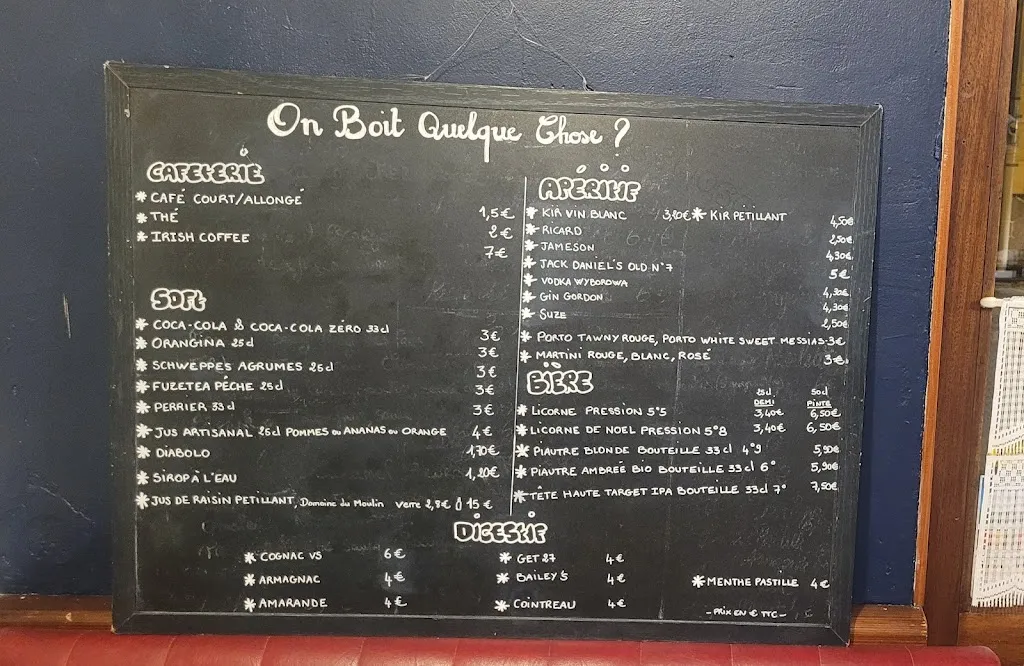 On Boit Quelque Chose ?
CAFETERIE
* CAFÉ COURT/ALLONGÉ 1,5€
* THÉ 2€
* IRISH COFFEE 7€
SOFT
* COCA-COLA & COCA-COLA ZÉRO 33cl 3€
* ORANGINA 25cl 3€
* SCHWEPPES AGRUMES 25cl 3€
* FUZETEA PÊCHE 25cl 3€
* PERRIER 33cl 3€
* JUS ARTISANAL 25cl POMMES ou ANANAS ou ORANGE 4€
* DIABOLO 1,70€
* SIROP À L'EAU 1,20€
* JUS DE RAISIN PETILLANT, Domaine du Moulin verre 2,8€ 15€
APÉRITIF
* KIR VIN BLANC 3,20€ * KIR PETILLANT 4,50€
* RICARD 2,50€
* JAMESON 4,30€
* JACK DANIEL'S OLD N°7 5€
* VODKA WYBOROWA 4,30€
* GIN GORDON 4,30€
* SUZE 2,50€
* PORTO TAWNY ROUGE, PORTO WHITE SWEET MESSIAS 3€
* MARTINI ROUGE, BLANC, ROSÉ 3€
BIÈRE
25cl 50cl
DEMI PINTE
* LICORNE PRESSION 5°5 3,40€ 6,50€
* LICORNE DE NOEL PRESSION 5°8 3,40€ 6,50€
* PIAUTRE BLONDE BOUTEILLE 33cl 4°9 5,90€
* PIAUTRE AMBREÉ BIO BOUTEILLE 33cl 6° 5,90€
* TÊTE HAUTE TARGET IPA BOUTEILLE 33cl 7° 7,50€
DIGESTIF
* COGNAC VS 6€
* ARMAGNAC 4€
* AMARANDE 4€
* GET 27 4€
* BAILEY'S 4€
* COINTREAU 4€
* MENTHE PASTILLE 4€
- PRIX EN € TTC -